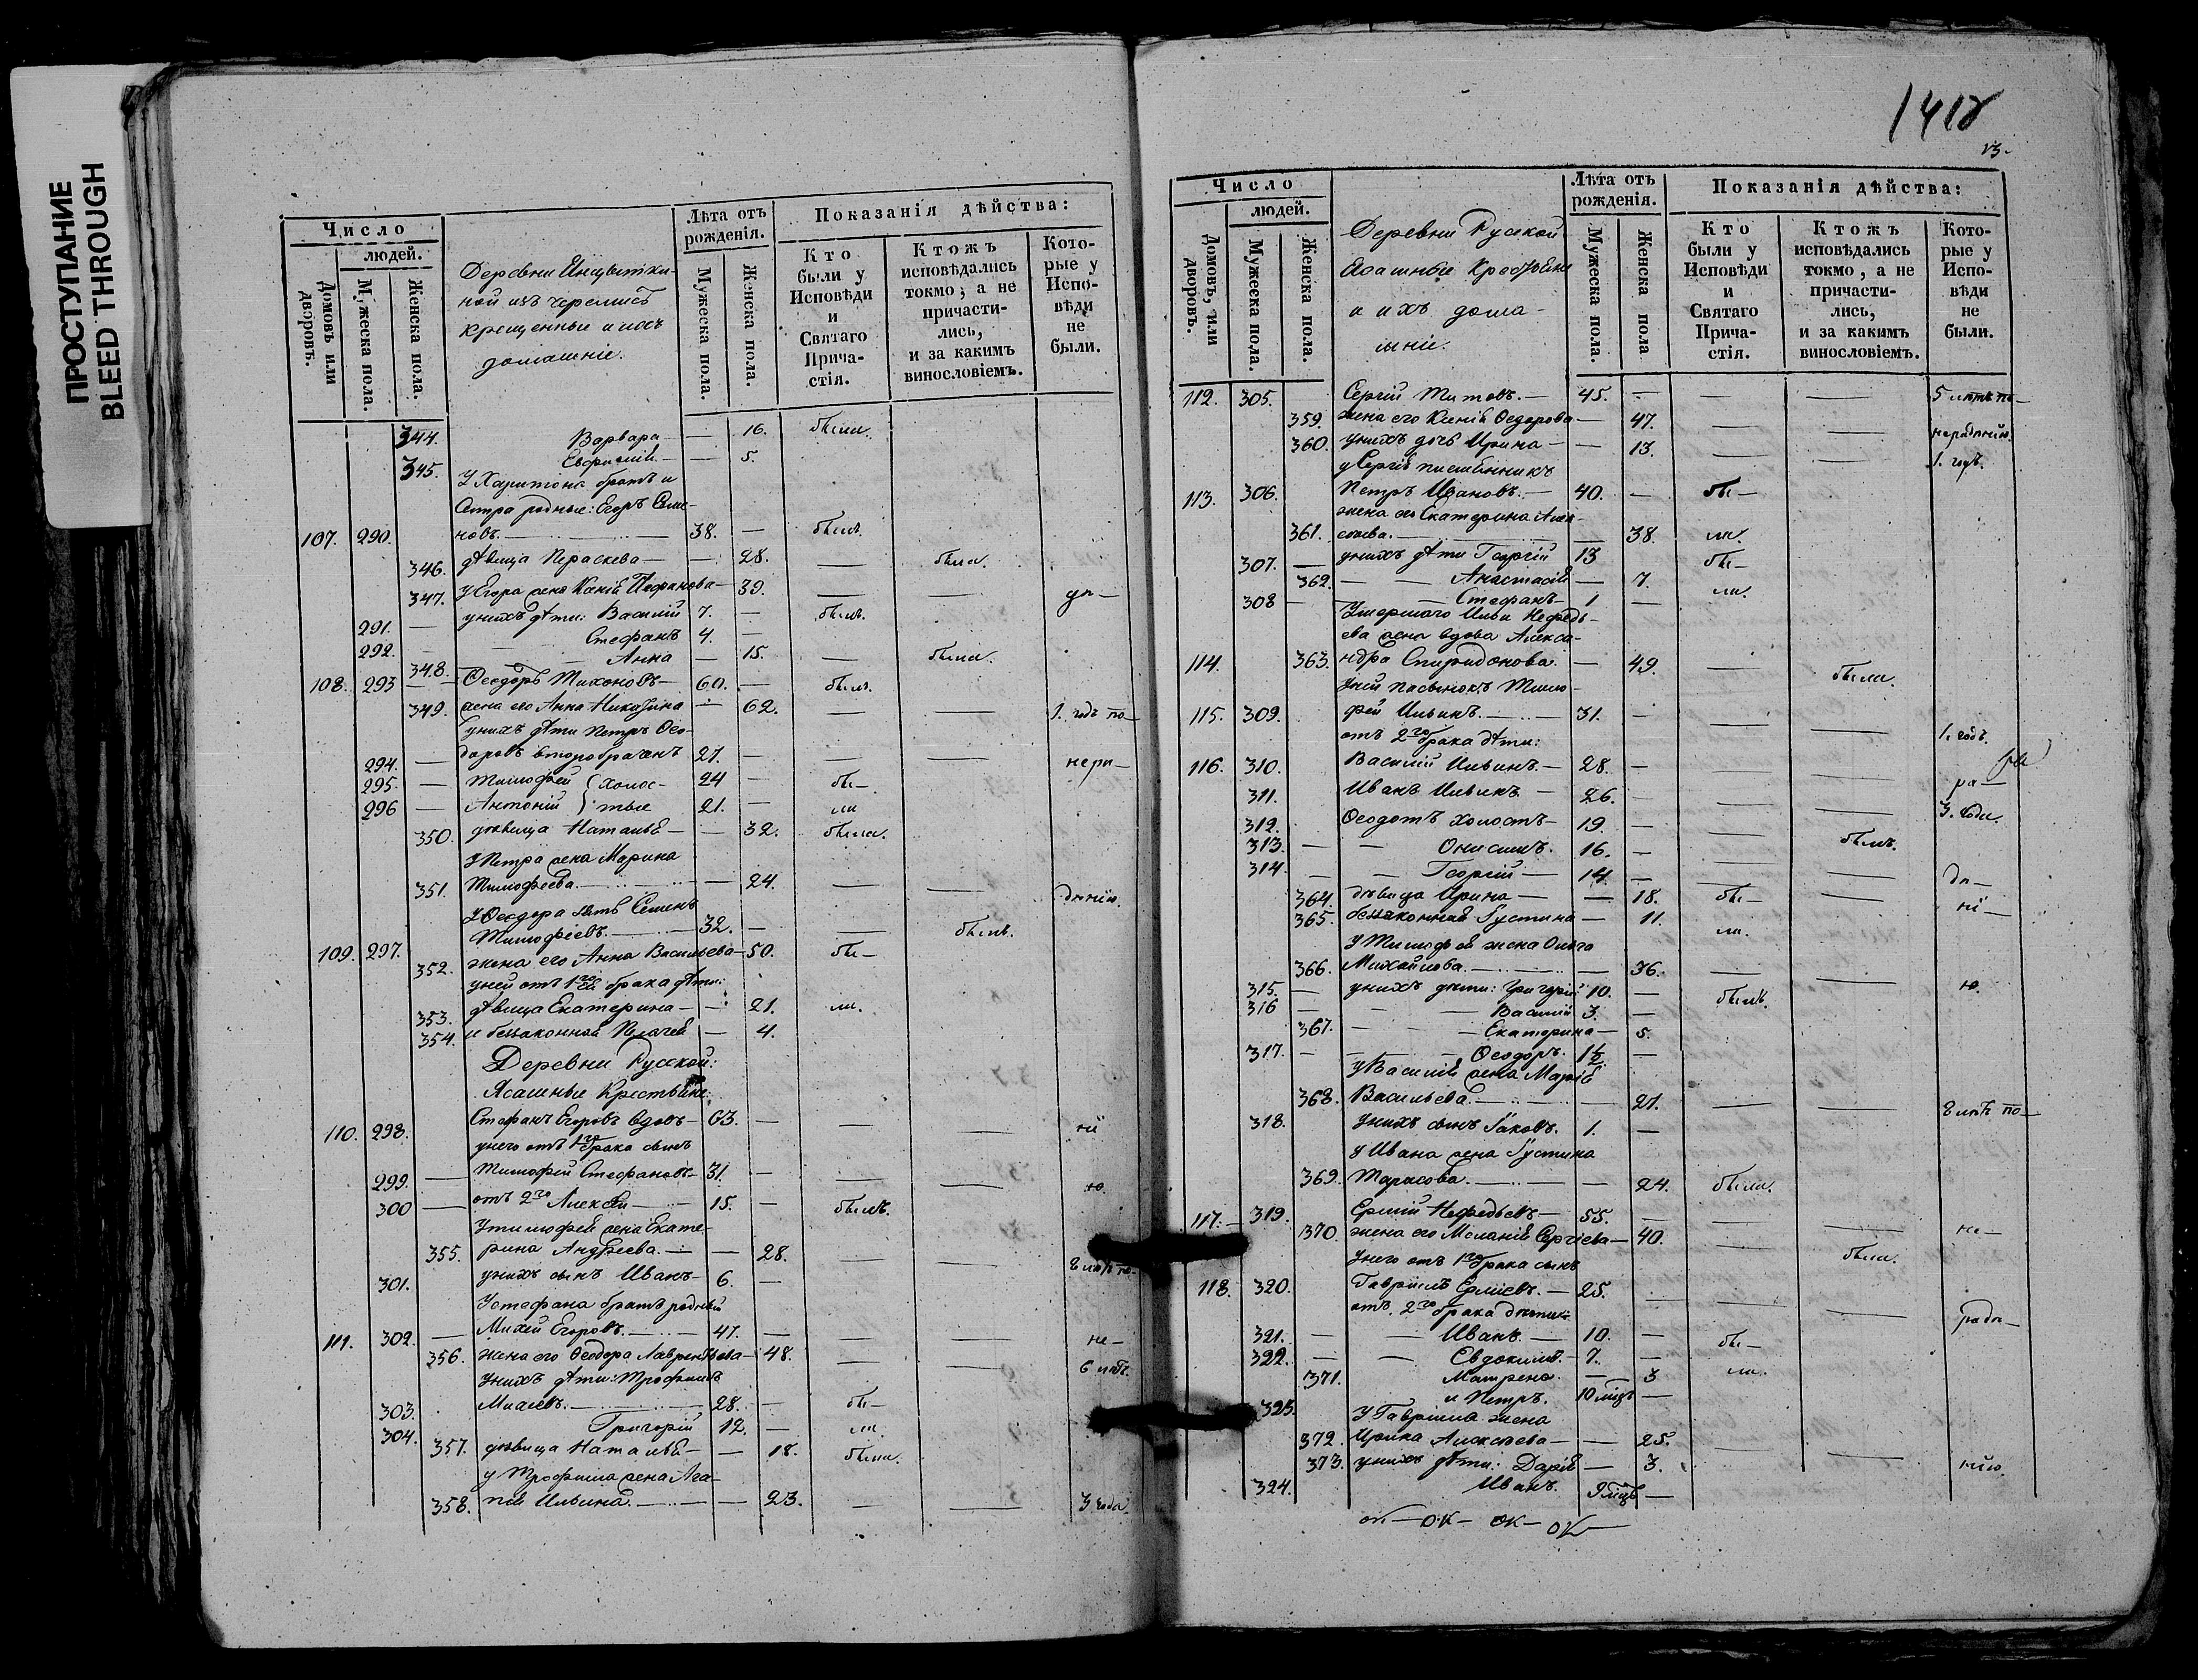 ПРОСТУПАНИЕ
BLEED THROUGH
Число
людей.
Домовъ или дворовъ.
Мужеска пола.
Женска пола.
Деревни
ной изъ черемисъ
крещенные и ихъ
домашніе.
Лѣта отъ рожденія.
Мужеска пола.
Женска пола.
Показанія дѣйства:
Кто были у Исповѣди и Святаго Прича-стія.
Ктожъ исповѣдались токмо, а не причасти-лись, и за какимъ винословіемъ.
Кото-рые у Испо-вѣди не были.
344. Варвара — — 16. была.
345. Евфимій — — 5.
У Харитона братъ и
сестра родные: Егоръ Семе-
107. 290. новъ. — 38. — былъ.
346. дѣвица Параскева — — 28. — была.
347. у Егора жена Ксенія — 39. — — 
291. — у нихъ дѣти: Василій 7. — былъ.
292. — Стефанъ 4. —
348. — Анна — 15. — была.
108. 293 — Ѳеодоръ Тихоновъ — 60. — былъ.
349. жена его Анна — 62. — — 1. годъ по —
у нихъ дѣти Петръ Ѳео-
294. — доровъ второбраченъ 27. — — — нера —
295. — Тимофей { холос- 24 — бы —
296 — Антоній } тые 21. — ли
350. дѣвица Наталья — — 32. была.
У Петра жена Марина
351. Тимофеева. — — 24. — — дѣнію.
У Ѳеодора зять Семенъ
109. 297. Тимофіевъ. — 32. — — былъ.
352. жена его Анна Васильева — 50. бы —
у ней отъ 1го брака дѣти:
353. дѣвица Екатерина — — 21. ли.
354. и беззаконная — 4.
Деревни Русской:
Ясашные Крестьяне:
110. 298. Стефанъ Егоровъ вдовъ — 63. — — — нії
у него отъ 1го брака сынъ
299. — Тимофей Стефановъ — 31. — — — ю.
300 — отъ 2го Алексѣй — 15. — былъ.
У Тимофея жена Екате-
355. рина Андреева. — — 28. — — 2 лѣт по-
301. у нихъ сынъ Иванъ — 6. —
У Стефана братъ родный
111. 302. — Михей Егоровъ. — 47. — — — не —
356. жена его Ѳеодора Лаврентьева — 48. — — 6 лѣтъ.
У нихъ дѣти: Трофимъ
303. Михеевъ. — 28. — бы —
304. Григорій 12. — ли
357. дѣвица Наталья — — 18. была.
у Трофима жена Ага-
358. пія Ильина. — — 23. — — 3 года.
1418
Число
людей.
Домовъ, или дворовъ.
Мужеска пола.
Женска пола.
Деревни Русской
Ясашные Крестьяне
и ихъ дома-
шніе.
Лѣта отъ рожденія.
Мужеска пола.
Женска пола
Показанія дѣйства:
Кто были у Исповѣди и Святаго Прича-стія.
Ктожъ исповѣдались токмо, а не причасти-лись, и за какимъ винословіемъ.
Кото-рые у Испо-вѣди не были.
112. 305. Сергій Титовъ. — 45. — — — 5 лѣтъ по —
359. жена его Ксенія Ѳедорова — 47. — — нерадѣнію.
360. у нихъ дочь Ирина — 13. — — 1. годъ.
у Сергія племянникъ
113. 306. Петръ Ивановъ. — 40. — бы —
жена его Екатерина Алек-
361. сѣева. — — 38. ли.
307. — у нихъ дѣти Георгій 13 бы —
362. — — Анастасія — 7. ли.
308 — — Стефанъ — 1 —
Умершаго Ильи Нефедь-
ева жена вдова Алекса-
114. 363. ндра Спиридонова. — 49. — были.
У ней пасынокъ Тимо-
115. 309. фей Ильинъ. — 31. — — — 1. годъ.
отъ 2го брака дѣти:
116. 310. Василій Ильинъ. — 28. — — — ра —
311. Иванъ Ильинъ. — 26. — — — 3. года.
312. Ѳеодотъ холостъ — 19. —
313. — — Онисимъ. 16. — — былъ.
314. — — Георгій — 14. — — — дѣ —
364. дѣвица Ирина — — 18. бы — — ні —
365. беззаконная Іустина — 11. ли.
У Тимофея жена Ольга
366. Михайлова. — — 36. — — ю.
315. — у нихъ дѣти: Григорій 10. — былъ.
316 — — Василій 3. —
367. — — Екатерина — 5.
317. — — Ѳеодоръ. 1½ —
у Василія жена Марія
368. Васильева. — — 27. — — 2 лѣт по —
318. У нихъ сынъ Іаковъ. 1. —
у Ивана жена Іустина
369. Тарасова. — — 24. была.
117. — 319. Ермій Нефедьевъ — 55. — — — не —
370. жена его Меланія Сергіева — 40. — была.
У него отъ 1го брака сынъ
118. 320. Гавріилъ Ерміевъ. — 25. — — — радѣ —
отъ 2го брака дѣти:
321. — — Иванъ. — 10. — бы —
322. — — Евдокимъ. — 7. — ли.
371. Матрена. — 3
323. и Петръ. 10 міцъ —
У Гавріила жена
372. Ирина Алексѣева — — 25. — — нію.
373. у нихъ дѣти: Дарія — 3.
324. Иванъ. 9 міцъ —